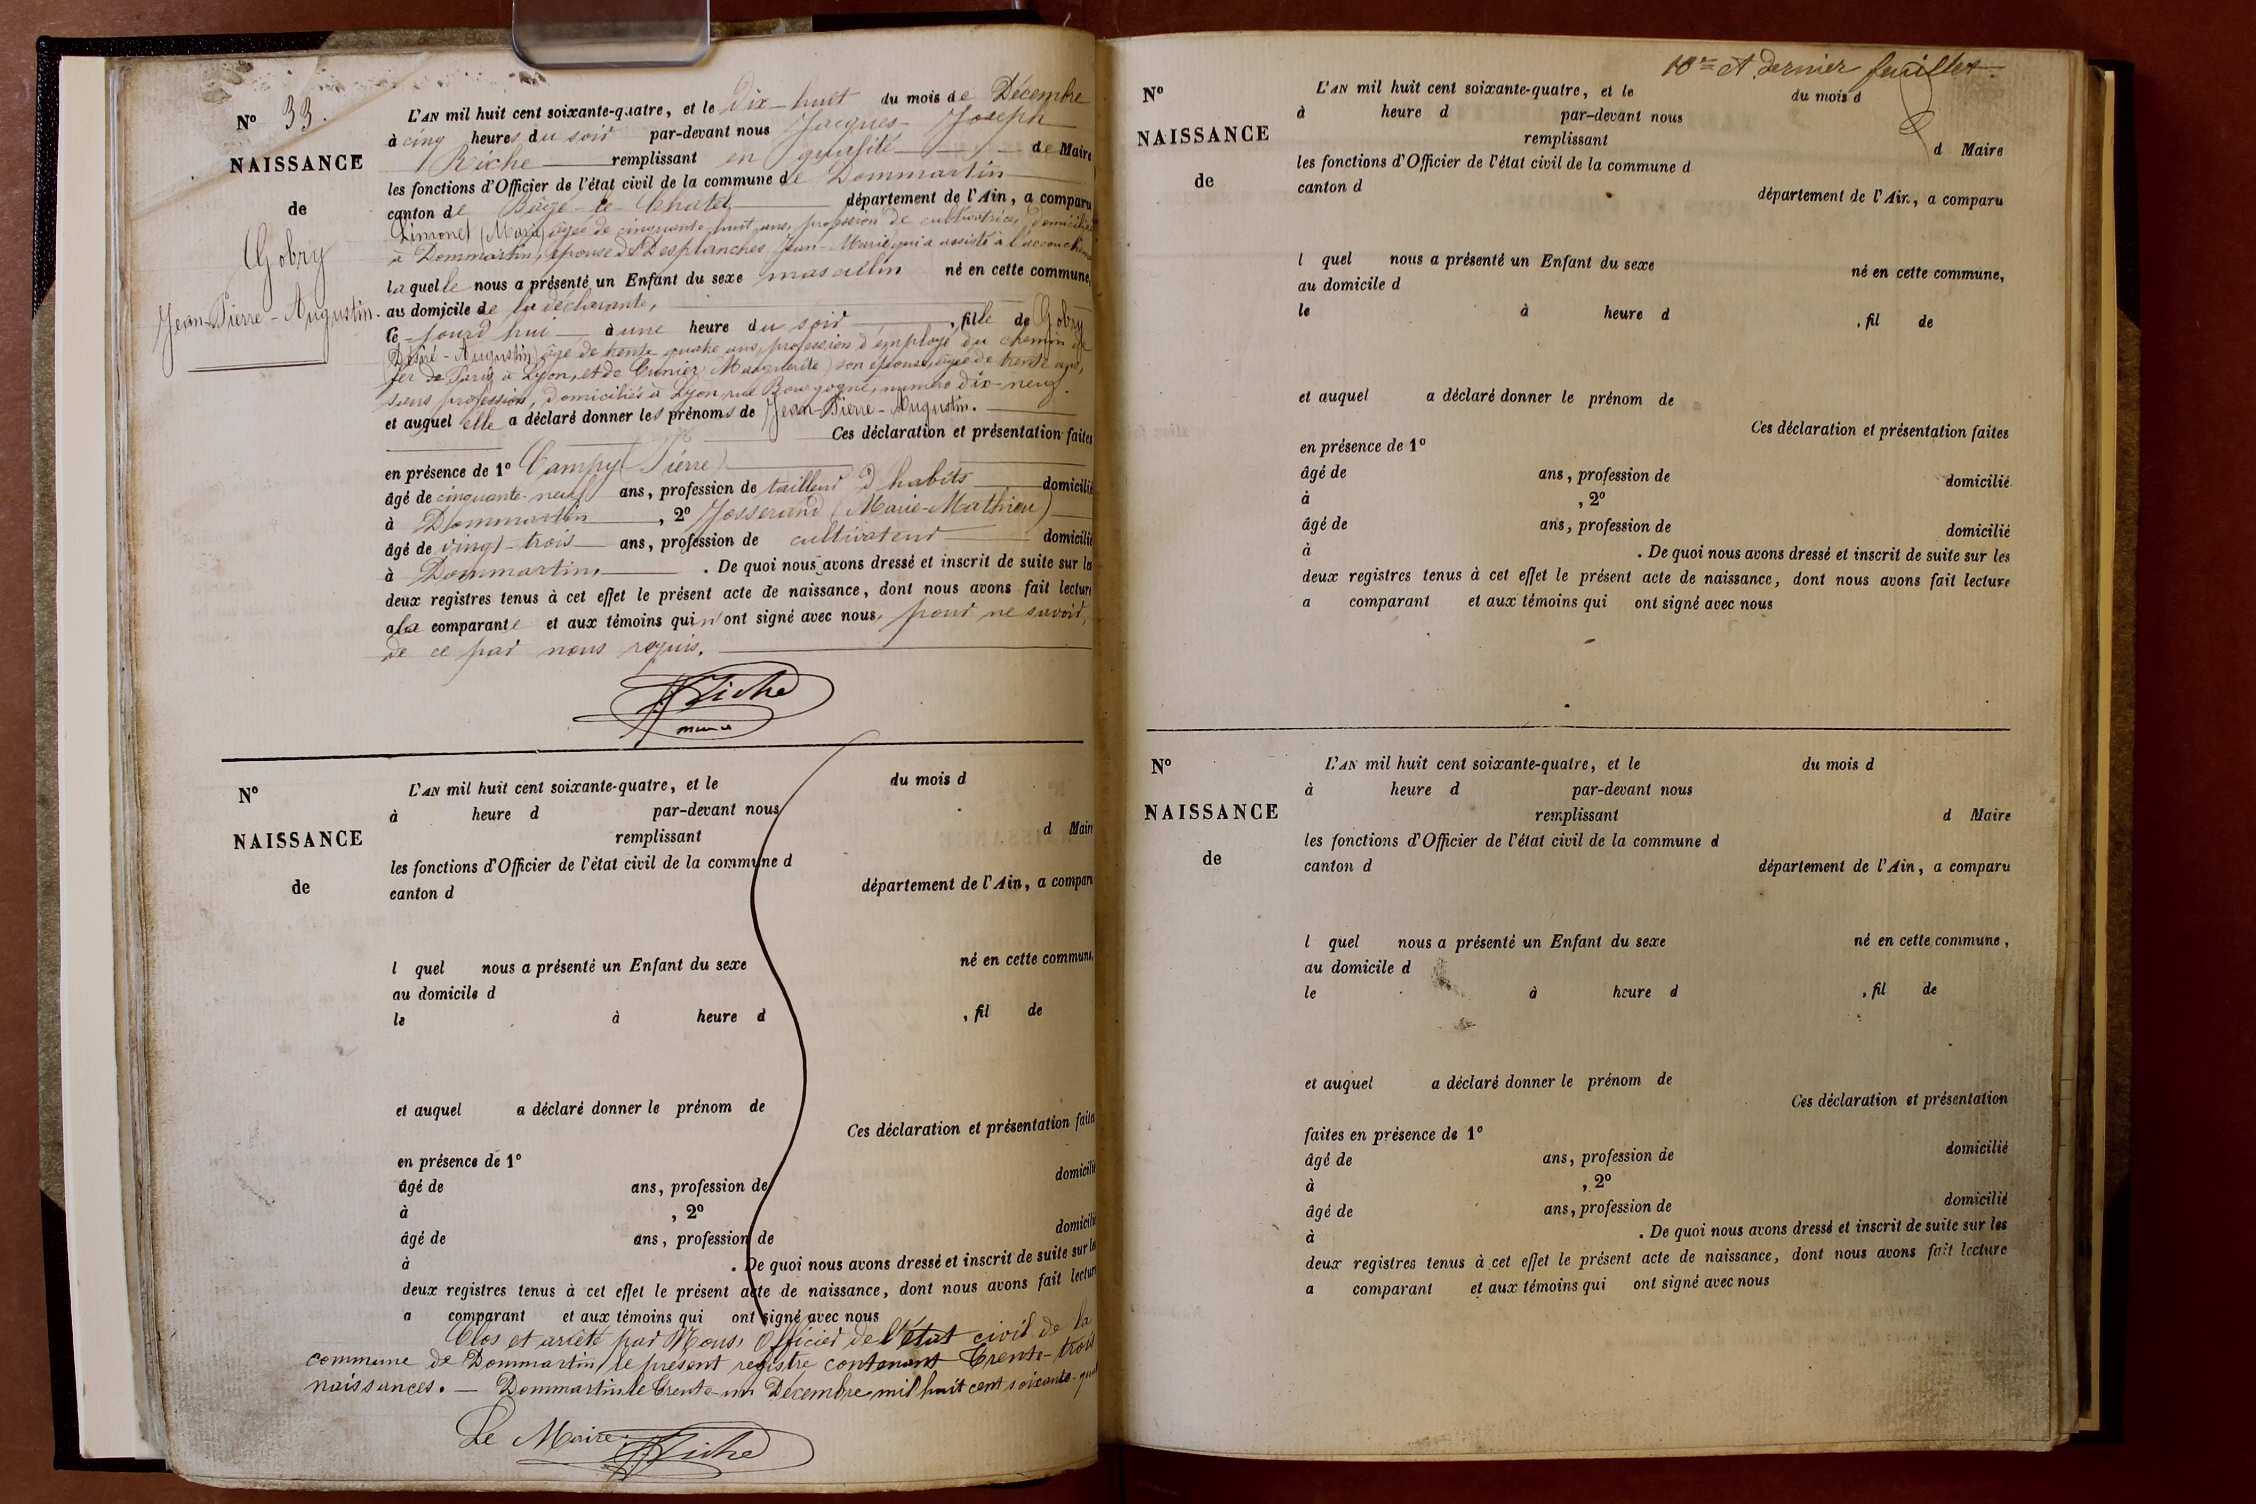 N° 33.
NAISSANCE
de
Gobry
Jean-Pierre-Augustin.
L'AN mil huit cent soixante-quatre, et le Dix-huit du mois de Décembre
à cinq heures du soir par-devant nous Jacques-Joseph
Riche remplissant en qualité de Maire
les fonctions d'Officier de l'état civil de la commune de Dommartin
canton de Bâgé-le-Chatel département de l'Ain, a comparu
Limonet (Marie) âgée de cinquante-huit ans, profession de cultivatrice, domiciliée
à Dommartin, épouse de Desplanches Jean-Marie qui a assisté à l'accouchement
laquelle nous a présenté un Enfant du sexe masculin né en cette commune,
au domicile de la déclarante,
Ce-jourd'hui à une heure du soir, fils de Gobry
Désiré-Augustin) âgé de trente-quatre ans, profession d'employé du chemin de
fer de Paris à Lyon, et de Cunier Marguerite) son épouse, âgée de trente ans,
sans profession, domiciliés à Lyon, rue Bourgogne, numéro dix-neuf.
et auquel elle a déclaré donner les prénoms de Jean-Pierre-Augustin.
Ces déclaration et présentation faites
en présence de 1° Campy (Pierre)
âgé de cinquante-neuf ans, profession de tailleur d'habits domicilié
à Dommartin, 2° Josserand (Marie-Mathieu)
âgé de vingt-trois ans, profession de cultivateur domicilié
à Dommartin. De quoi nous avons dressé et inscrit de suite sur les
deux registres tenus à cet effet le présent acte de naissance, dont nous avons fait lecture
a la comparante et aux témoins qui n'ont signé avec nous, pour ne savoir,
de ce par nous requis.
JJRiche
maire
N°
NAISSANCE
de
L'AN mil huit cent soixante-quatre, et le du mois d
à heure d par-devant nous
remplissant d Maire
les fonctions d'Officier de l'état civil de la commune d
canton d département de l'Ain, a comparu
l quel nous a présenté un Enfant du sexe né en cette commune,
au domicile d
le à heure d , fil de
et auquel a déclaré donner le prénom de
Ces déclaration et présentation faites
en présence de 1°
âgé de ans, profession de domicilié
à , 2°
âgé de ans, profession de domicilié
à . De quoi nous avons dressé et inscrit de suite sur les
deux registres tenus à cet effet le présent acte de naissance, dont nous avons fait lecture
a comparant et aux témoins qui ont signé avec nous
Clos et arrêté par Nous, Officier de l'état civil de la
commune de Dommartin, le présent registre contenant Trente-trois
naissances. — Dommartin le trente-un Décembre mil huit cent soixante-quatre
Le Maire.
JJRiche
10me et dernier feuillet
N°
NAISSANCE
de
L'AN mil huit cent soixante-quatre, et le du mois d
à heure d par-devant nous
remplissant d Maire
les fonctions d'Officier de l'état civil de la commune d
canton d département de l'Ain, a comparu
l quel nous a présenté un Enfant du sexe né en cette commune,
au domicile d
le à heure d , fil de
et auquel a déclaré donner le prénom de
Ces déclaration et présentation faites
en présence de 1°
âgé de ans, profession de domicilié
à , 2°
âgé de ans, profession de domicilié
à . De quoi nous avons dressé et inscrit de suite sur les
deux registres tenus à cet effet le présent acte de naissance, dont nous avons fait lecture
a comparant et aux témoins qui ont signé avec nous
N°
NAISSANCE
de
L'AN mil huit cent soixante-quatre, et le du mois d
à heure d par-devant nous
remplissant d Maire
les fonctions d'Officier de l'état civil de la commune d
canton d département de l'Ain, a comparu
l quel nous a présenté un Enfant du sexe né en cette commune,
au domicile d
le à heure d , fil de
et auquel a déclaré donner le prénom de
Ces déclaration et présentation
faites en présence de 1°
âgé de ans, profession de domicilié
à , 2°
âgé de ans, profession de domicilié
à . De quoi nous avons dressé et inscrit de suite sur les
deux registres tenus à cet effet le présent acte de naissance, dont nous avons fait lecture
a comparant et aux témoins qui ont signé avec nous